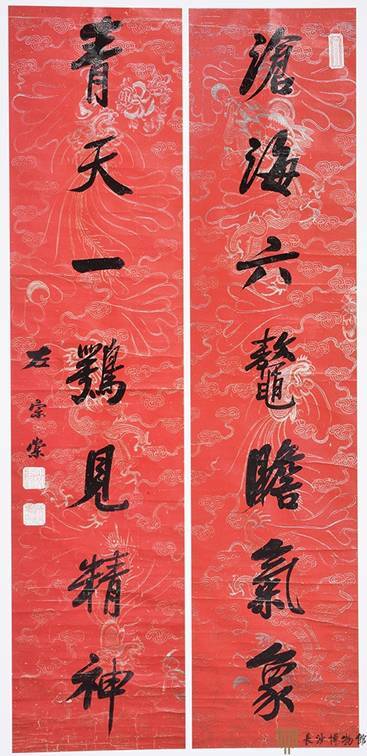 滄海六鼇瞻氣象
青天一鶚見精神
左宗棠
長沙博物館